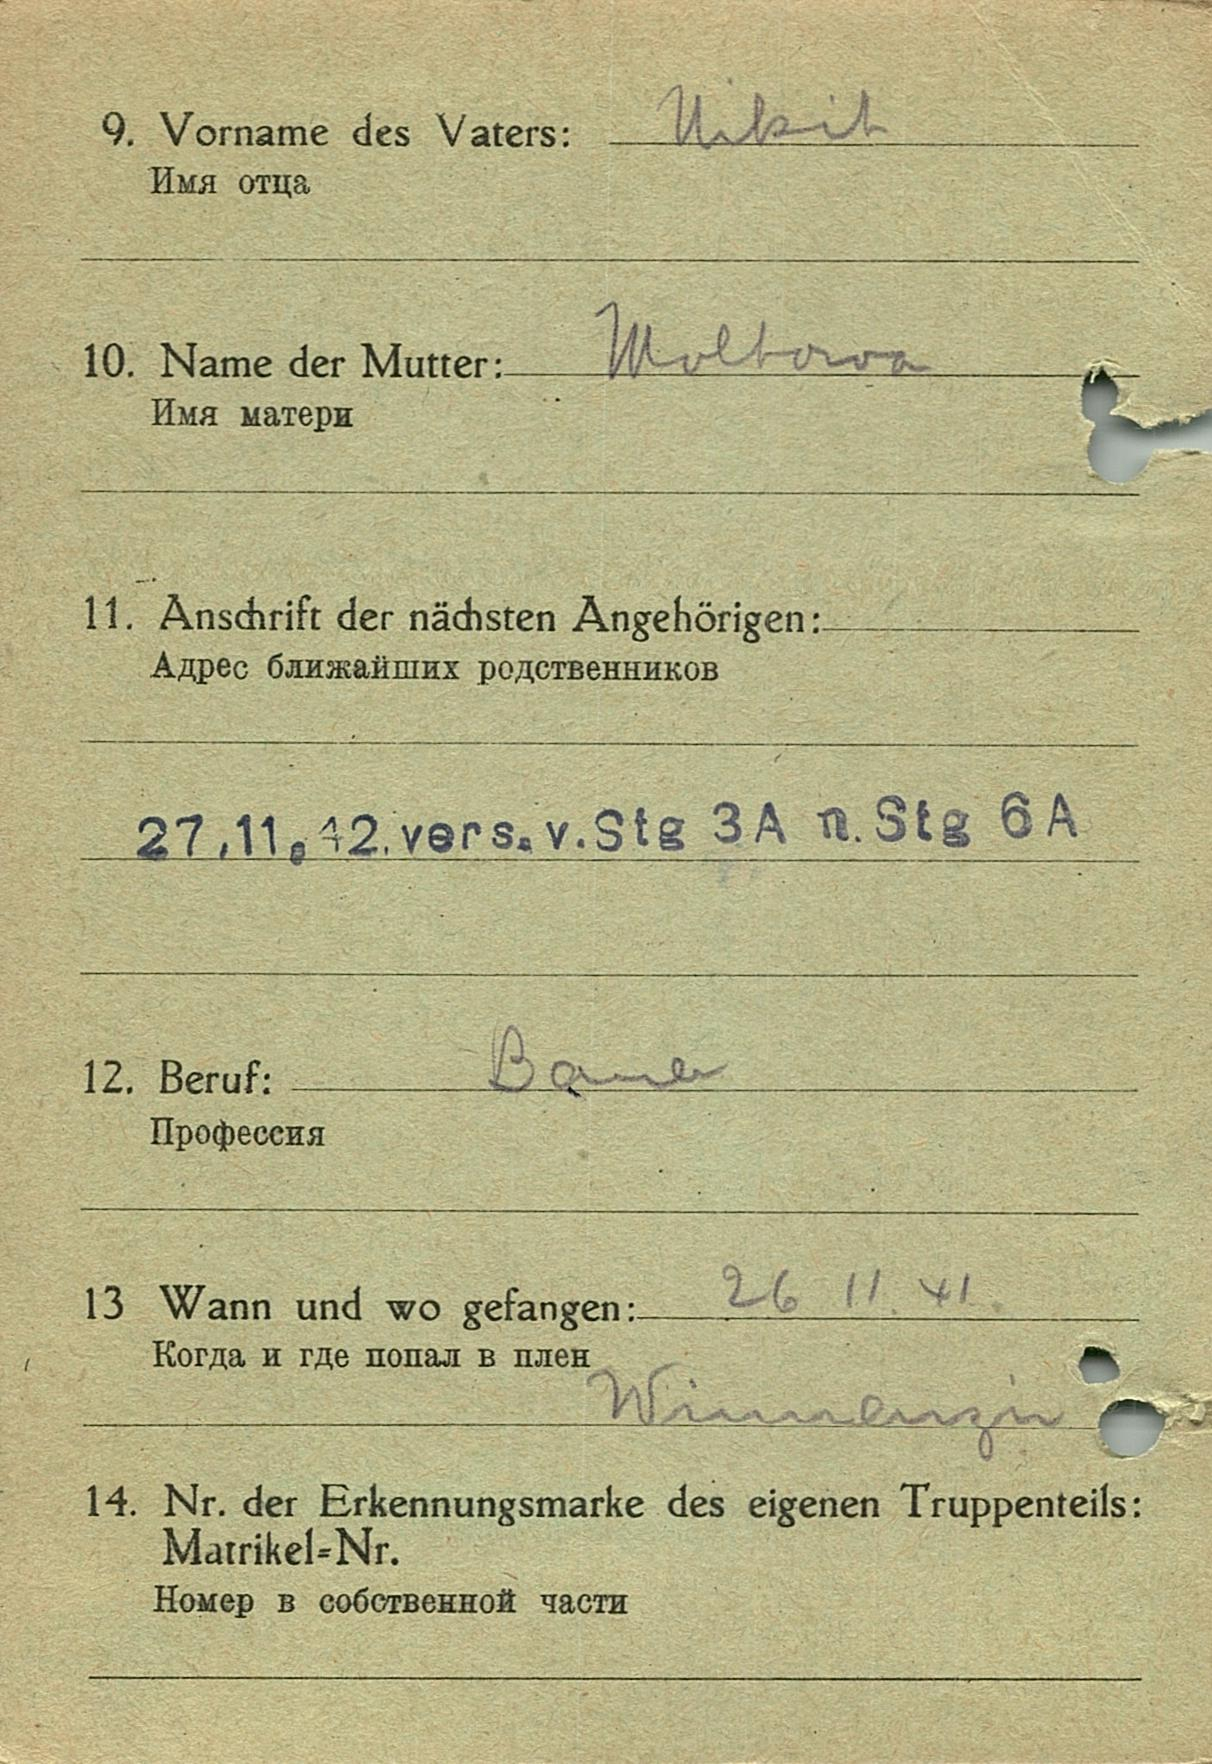 9. Vorname des Vaters: Nikit
Имя отца
10. Name der Mutter: Woltowa
Имя матери
11. Anschrift der nächsten Angehörigen:
Адрес ближайших родственников
27.11.42. vers. v. Stg 3A n. Stg 6A
12. Beruf: Bauer
Профессия
13 Wann und wo gefangen: 26 11. 41.
Когда и где попал в плен
14. Nr. der Erkennungsmarke des eigenen Truppenteils:
Matrikel=Nr.
Номер в собственной части